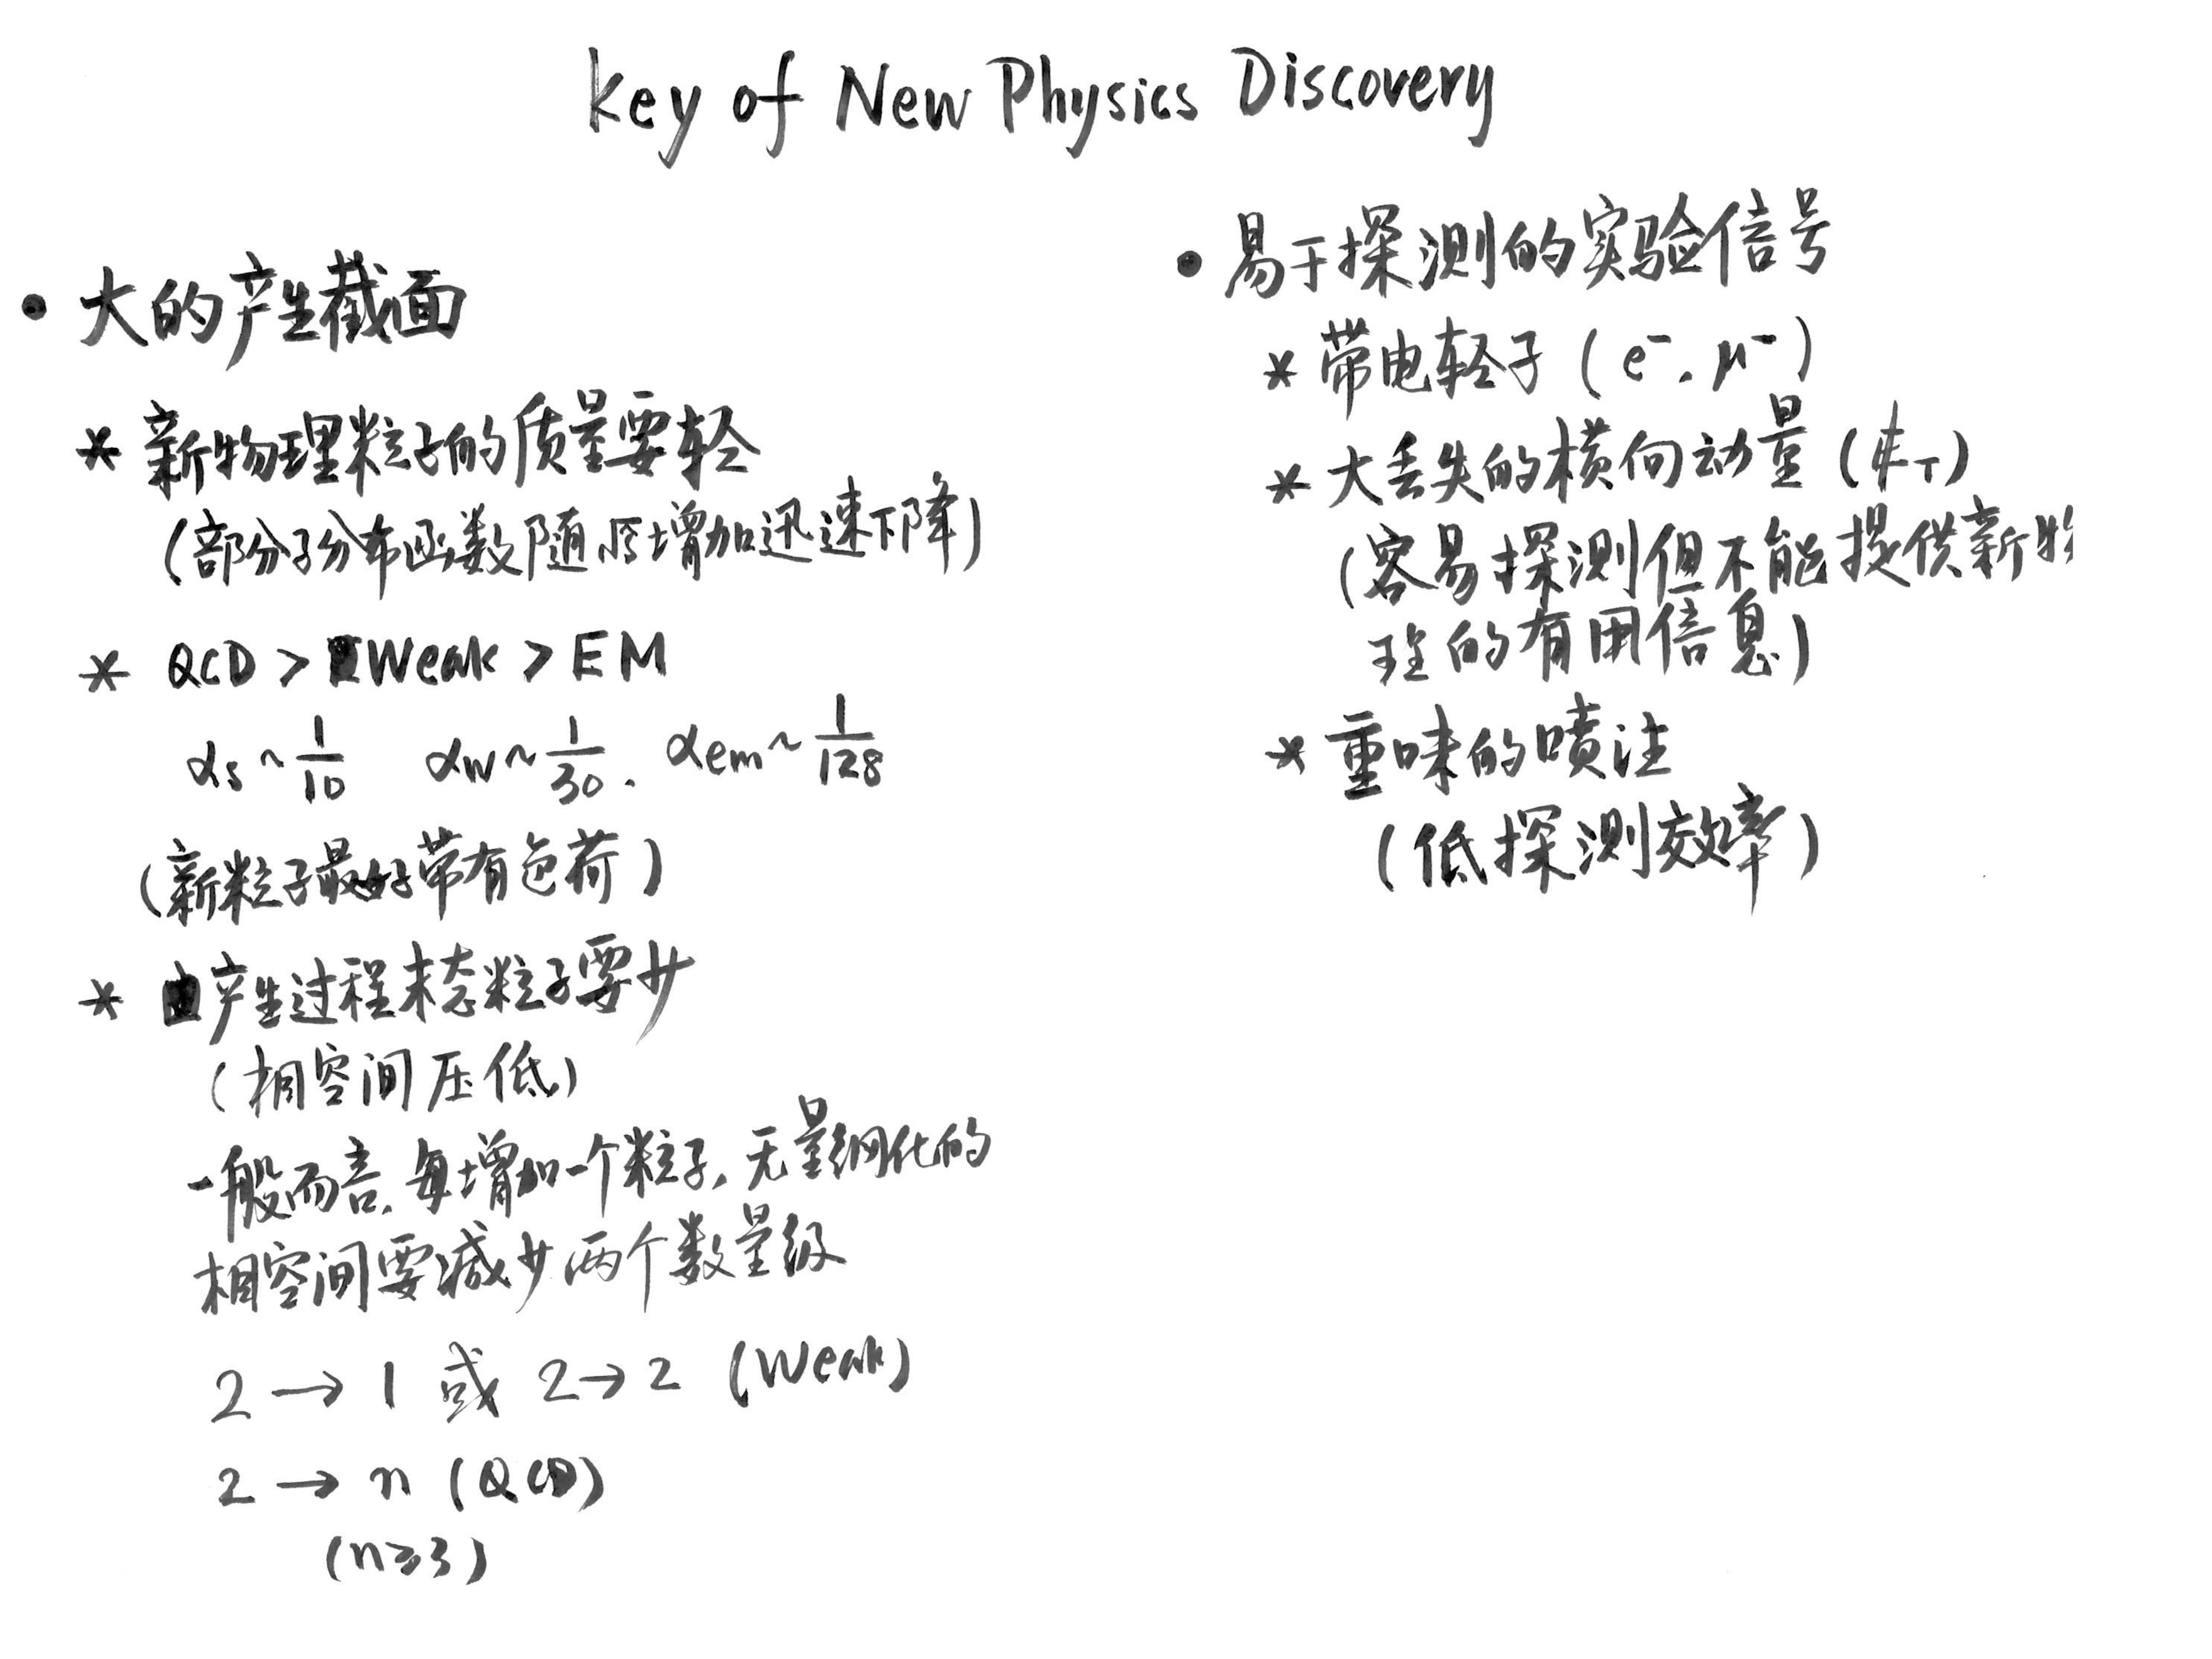 Key of New Physics Discovery
• 大的产生截面
* 新物理粒子的质量要轻
(部分子分布函数随√ŝ增加迅速下降)
* QCD > Weak > EM
αs ~ 1/10 αw ~ 1/30. αem ~ 1/128
(新粒子最好带有色荷)
* 产生过程末态粒子要少
(相空间压低)
一般而言,每增加一个粒子,无量纲化的
相空间要减少两个数量级
2 → 1 或 2 → 2 (Weak)
2 → n (QCD)
(n≥3)
• 易于探测的实验信号
* 带电轻子 (e⁻, μ⁻)
* 大丢失的横向动量 (E̸_T)
(容易探测但不能提供新物
理的有用信息)
* 重味的喷注
(低探测效率)